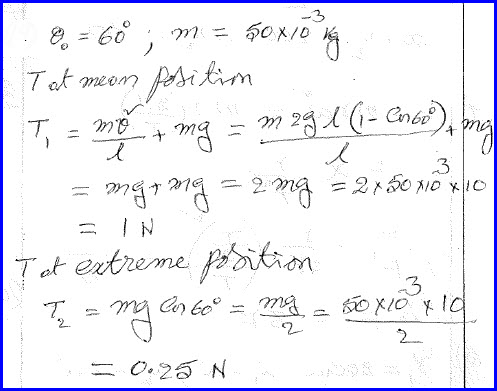 θ₀ = 60° ; m = 50×10⁻³ kg
T at mean position
T₁ = mv²/l + mg = m 2g l (1 - Cos 60°)/l + mg
= mg + mg = 2 mg = 2×50×10⁻³×10
= 1 N
T at extreme position
T₂ = mg Cos 60° = mg/2 = 50×10⁻³×10/2
= 0.25 N